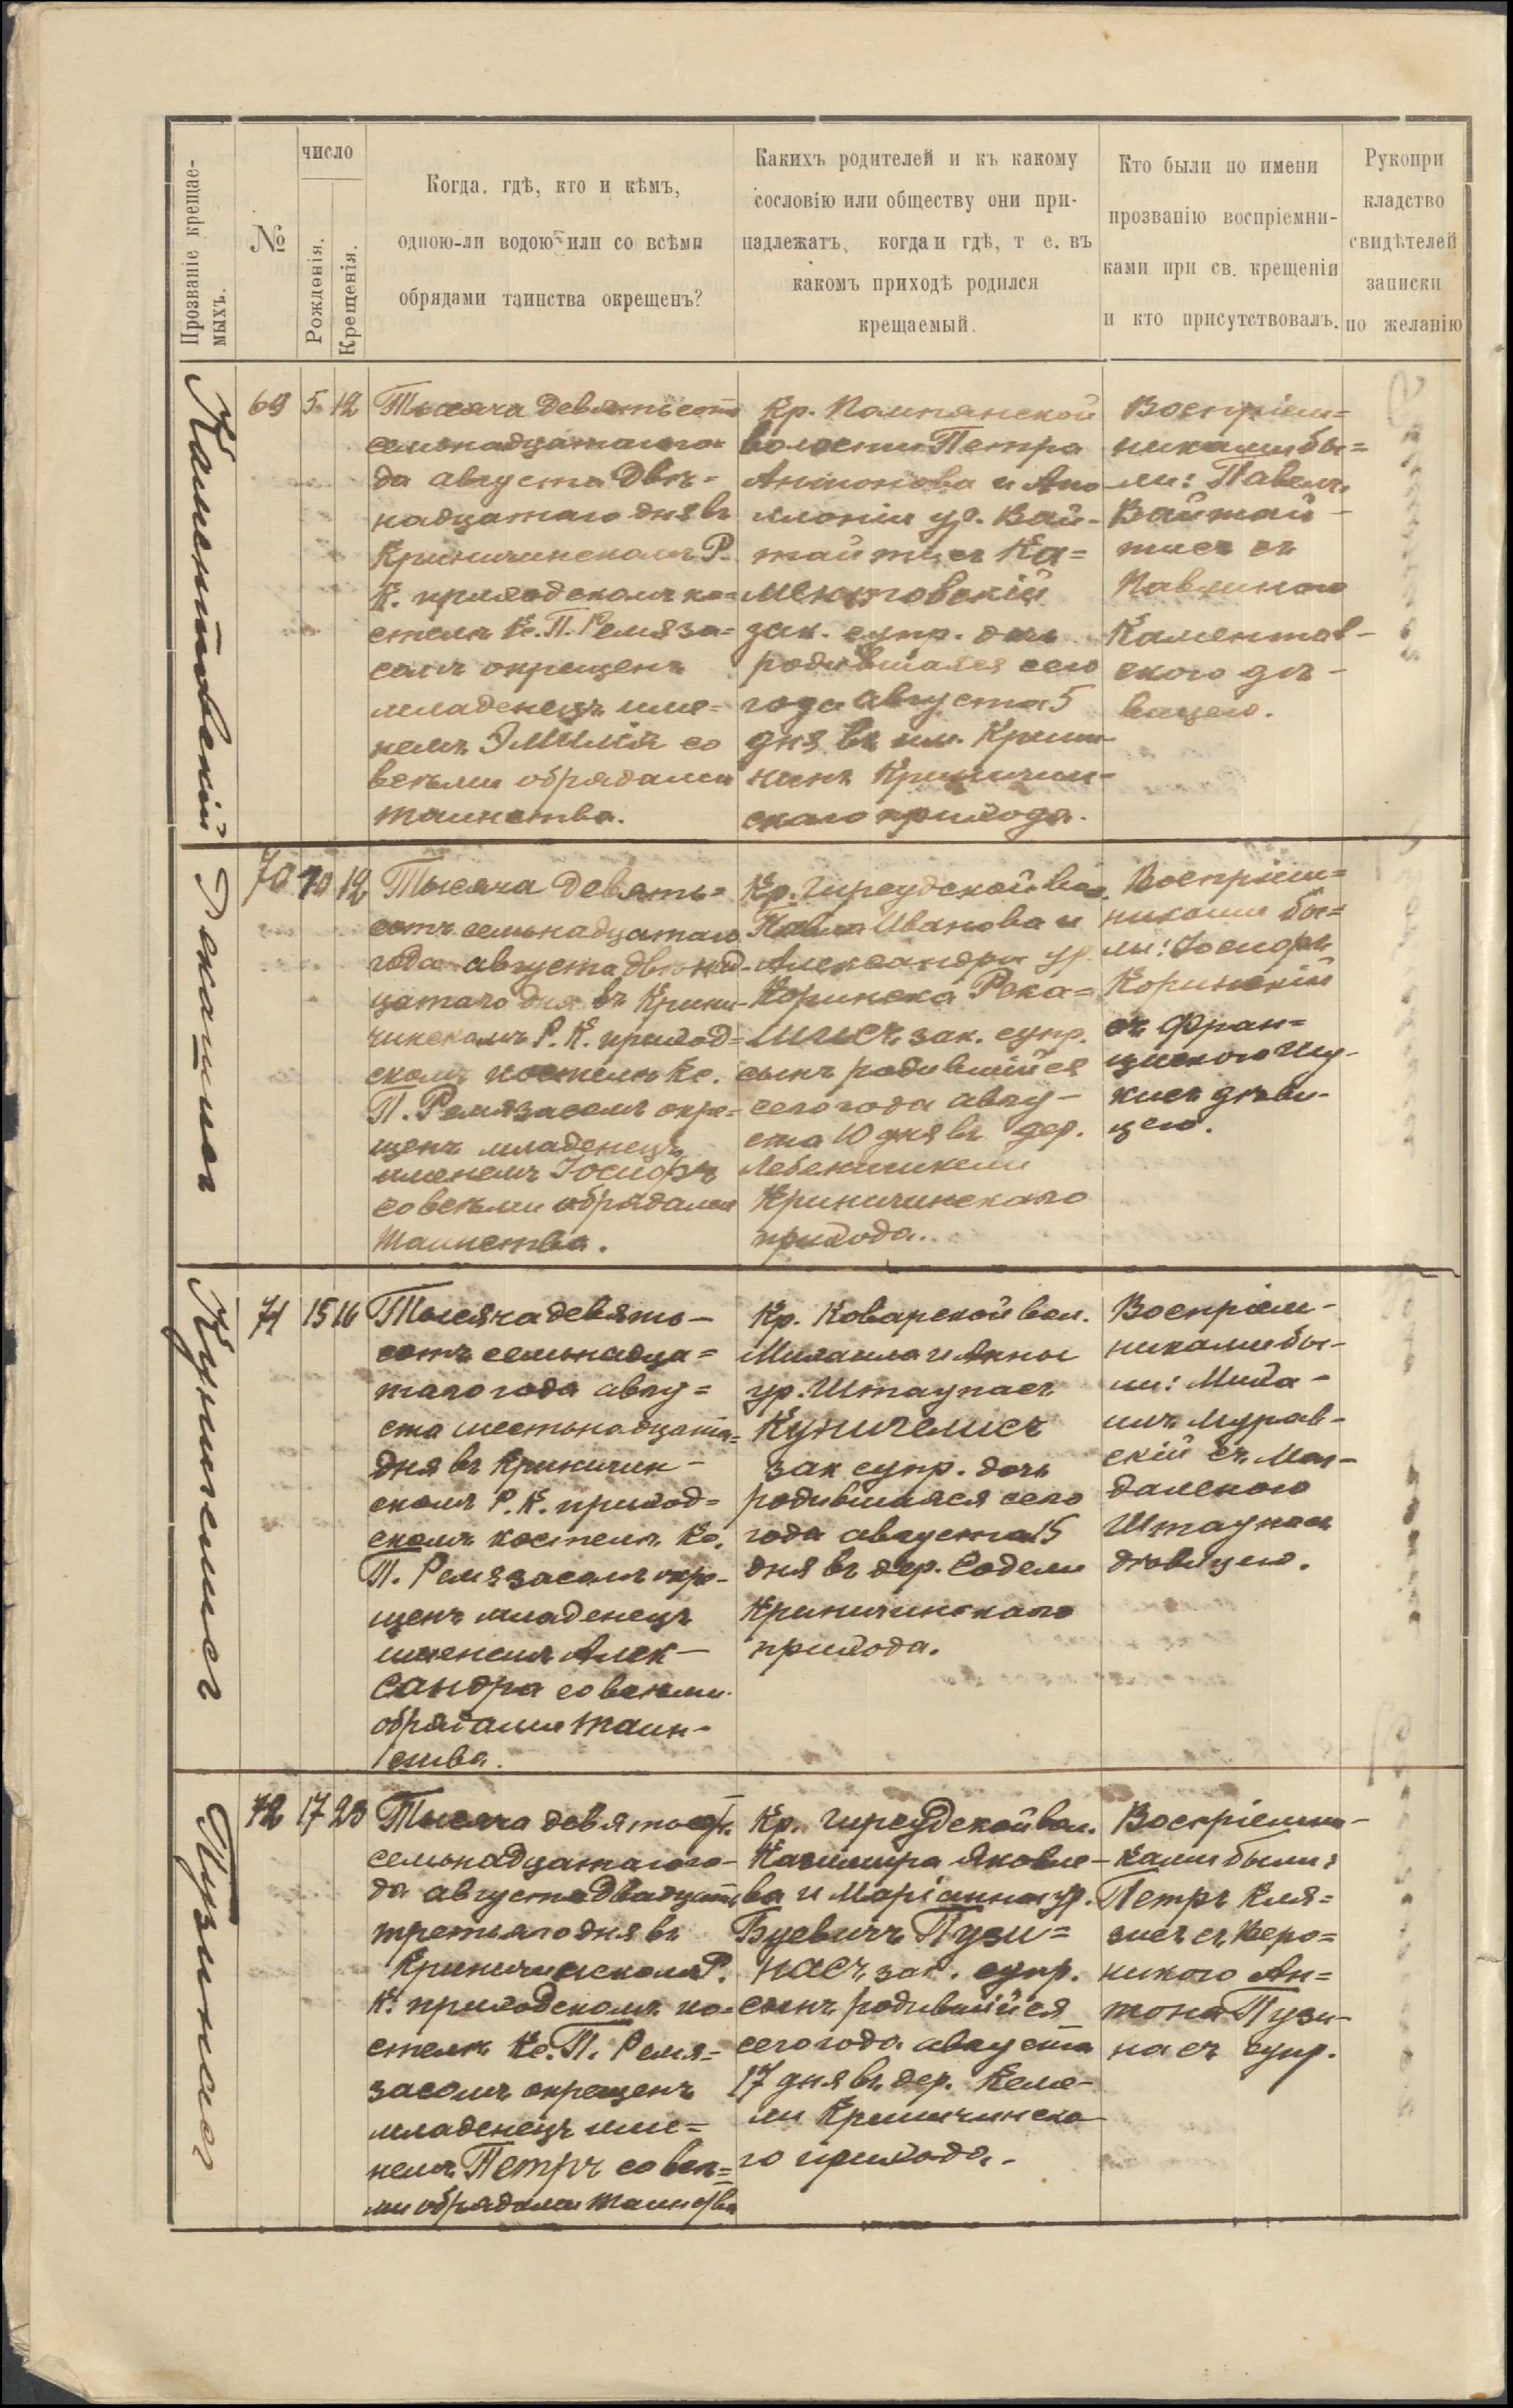 Прозваніе крещае-
мыхъ.
№
число
Рожденія.
Крещенія.
Когда, гдѣ, кто и кѣмъ,
одною-ли водою или со всѣми
обрядами таинства окрещенъ?
Какихъ родителей и къ какому
сословію или обществу они при-
надлежатъ, когда и гдѣ, т е. въ
какомъ приходѣ родился
крещаемый.
Кто были по имени
прозванію воспріемни-
ками при св. крещеніи
и кто присутствовалъ.
Рукопри
кладство
свидѣтелей
записки
по желанію
Каментовскій
69 5 12
Тысяча девятьсотъ
семьнадцатаго го-
да августа двѣ=
надцатаго дня въ
Криничинскомъ Р.
К. приходскомъ ко=
стелѣ Кс. П. Ремяза=
сомъ окрещенъ
младенецъ име=
немъ Эмилія со
всѣми обрядами
таинства.
Кр. Помпянской
волости Петра
Антонова и Апо-
лоніи ур. Вай-
тайтисъ Ка=
ментовскій
зак. супр. дочь
родившаяся сего
года августа 5
дня въ им. Крини-
чинъ Криничин-
скаго прихода.
Воспріем=
никами бы=
ли: Павелъ
Вайтай-
тисъ съ
Павлиною
Каментов-
скою дѣ-
вицею.
Рекашюс
70 10 12
Тысяча девять=
сотъ семьнадцатаго
года августа двѣнад-
цатаго дня въ Крини-
чинскомъ Р. К. приход=
скомъ костелѣ Кс.
П. Ремязасомъ окре=
щенъ младенецъ
именемъ Іосифъ
со всѣми обрядами
таинства.
Кр. Гиреудской вол.
Павла Иванова и
Александры ур.
Коринска Река=
сынъ родившійся
сего года авгу-
ста 10 дня въ дер.
Криничинскаго
прихода.
Воспріем=
никами бы=
ли: Іосифъ
Коринскій
съ Фран=
цишкою
дѣви-
цею.
Купшелис
71 15 16
Тысяча девять-
сотъ семьнадца=
таго года авгу=
ста шестьнадцата=
дня въ Криничин-
скомъ Р. К. приход=
скомъ костелѣ Кс.
П. Ремязасомъ окре-
щенъ младенецъ
именемъ Алек-
сандра со всѣми
обрядами таин-
ства.
Кр. Коварской вол.
Михаила и Анны
ур. Штаупасъ
зак супр. дочь
родившаяся сего
года августа 15
дня въ дер. Содели
Криничинскаго
прихода.
Воспріем-
никами бы-
ли: Миха-
илъ Мурав-
скій съ Маг-
даленою
Штаупасъ
дѣвицею.
Пузинас
72 17 23
Тысяча девятьсотъ
семьнадцатаго го-
да августа двадцать
третьяго дня въ
Криничинскомъ Р.
К. приходскомъ ко=
стелѣ Кс. П. Ремя=
засомъ окрещенъ
младенецъ име=
немъ Петръ со всѣ=
ми обрядами таинства
Кр. Гиреудской вол.
Казимира Яковле-
ва и Маріанны ур.
Буевичъ Пузи=
насъ, зак. супр.
сынъ родившійся
сего года августа
17 дня въ дер. Келе-
ли Криничинска
го прихода.
Воспріемни-
ками были:
Петръ Кля=
зисъ съ Веро=
никою Ан=
тона Пузи-
насъ супр.